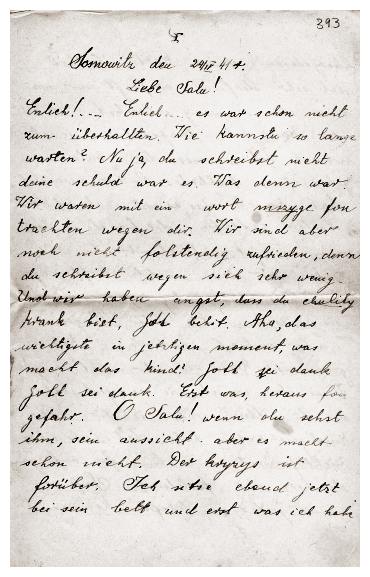 393
I
Somowitz den 24/II 41 r.
Liebe Salu!
Enlich!... Enlich... es war schon nicht
zum überhallten. Wie kannstu so lange
warten? Nu ja, du schreibst nicht
deine schuld war es. Was denn war.
Wir waren mit ein wort mrzyge fon
trachten wegen dir. Wir sind aber
noch nicht folstendig zufrieden, denn
du schreibst wegen sich sehr wenig.
Und wir haben angst, dass du
krank bist, Gott behit. Aha, das
wichtigste in jetztigen moment, was
macht das kind? Gott sei dank
Gott sei dank. Erst was, heraus fon
gefahr. O Salu! wenn du sehst
ihm, sein aussicht. aber es macht
schon nicht. Der kryzys ist
forüber. Ich sitze ebend jetzt
bei sein bett und erst was ich habe